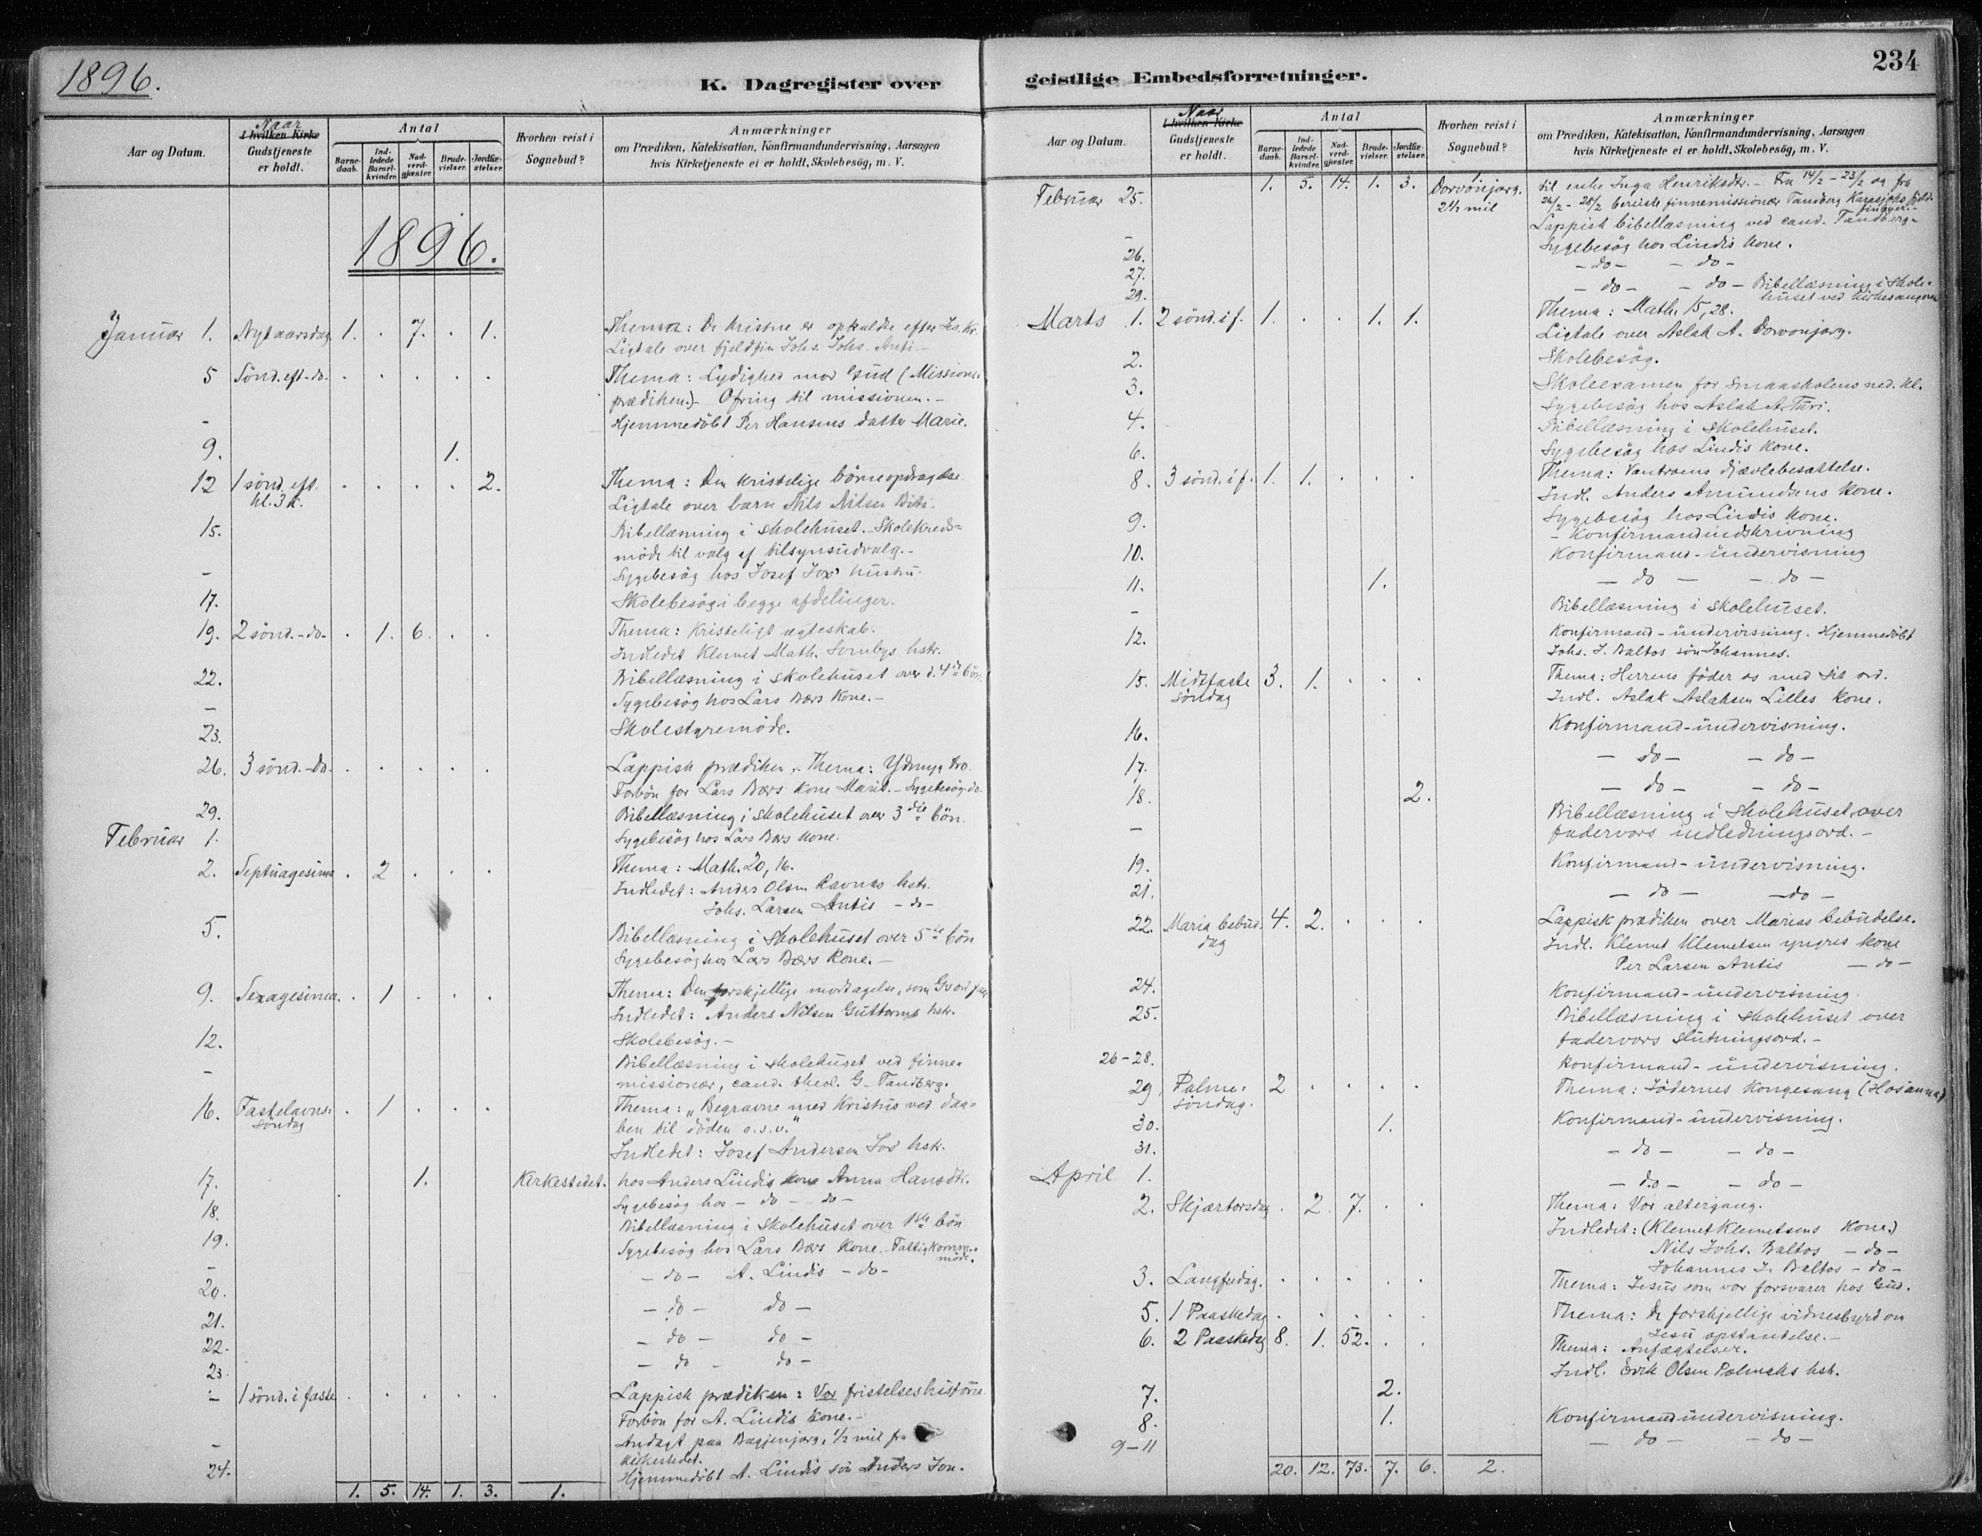 1896.
K. Dagregister over
Aar og Datum.
Naar
I hvilken Kirke
Gudstjeneste
er holdt.
Antal
Barne-
daab.
Ind-
ledede
Barsel-
kvinder.
Nad-
verd-
gjæster.
Brude-
vielser.
Jordfæ-
stelser.
Hvorhen reist i
Sognebud?
Anmærkninger
om Prædiken, Katekisation, Konfirmandundervisning, Aarsagen
hvis Kirketjeneste ei er holdt, Skolebesög, m. V.
1896.
Januar 1. Nytaarsdag 1. . 7. . 1. Thema: De kristne er opkaldte efter Jes. Kr.
Ligtale over fjeldfin Johs. Johs. Anti.-
5 Sönd. eft. do. . . . . . Thema: Lydighed mod Gud (Missions-
prædiken.) - Ofring til missionen. -
- Hjemmedöbt Per Hansens datter Marie.
9. 1.
12 1 sönd. eft. . . . . 2. Thema: Den kristelige börneopdragelse.
kl. 3 k. Ligtale over barn Nils Nilsen
15. Bibellæsning i skolehuset. - Skolekreds-
möde til valg af tilsynsudvalg. -
- Sygebesög hos Josef Jos' hustru.
17. Skolebesög i begge afdelinger.
19. 2 sönd. -do- . 1. 6. . . Thema: Kristeligt ægteskab.
Indledet Klemet Math. Sombys hstr.
22. Bibellæsning i skolehuset over d. 4de bön.
- Sygebesög hos Lars Bærs kone. -
23. Skolestyremöde.
26. 3 sönd. -do- . . . . . Lappisk prædiken. Thema: Ydmyg tro.
Forbön for Lars Bærs kone Marit. - Sygebesög do
29. Bibellæsning i skolehuset over 3die bön.
Februar 1. Sygebesög hos Lars Bærs kone.
2. Septuagesima . 2 . . . Thema: Math. 20, 16.
Indledet: Anders Olsen Ravnas hstr.
Johs. Larsen Antis - do -
5. Bibellæsning i skolehuset over 5te bön
Sygebesög hos Lars Bærs kone. -
9. Sexagesima. . 1 . . . Thema: Den forskjellige modtagelse, som Gs ord faar
Indledet: Anders Nilsen Guttorms hstr.
12. Skolebesög. -
- Bibellæsning i skolehuset ved finne-
missionær, cand. theol. G. Tandberg.
16. Fastelavns- . 1 . . . Thema: "Begravne med Kristus ved daa-
söndag ben til döden o.s.v."
Indledet: Josef Andersen Jos hstr.
17. 1. Kirkestedet. hos Anders Lindis kone Anna Hansdtr.
18. Sygebesög hos - do - do -
19. Bibellæsning i skolehuset over 1ste bön
- Sygebesög hos Lars Bærs kone. - Fattigkomm.
möde.
20. - do - A. Lindis - do -
21. - do - do -
22. - do - do -
23. - do - do -
- 1 sönd. i faste . . . . . Lappisk prædiken: Vor fristelseshistorie.
Forbön for A. Lindis kone. -
- Andagt paa Bagjenjarg, 1/2 mil fra
kirkestedet.
24. Hjemmedöbt A. Lindis sön Anders Jon.
1. 5. 14. 1. 3. 1.
geistlige Embedsforretninger.
234
Aar og Datum.
Naar
I hvilken Kirke
Gudstjeneste
er holdt.
Antal
Barne-
daab.
Ind-
ledede
Barsel-
kvinder.
Nad-
verd-
gjæster.
Brude-
vielser.
Jordfæ-
stelser.
Hvorhen reist i
Sognebud?
Anmærkninger
om Prædiken, Katekisation, Konfirmandundervisning, Aarsagen
hvis Kirketjeneste ei er holdt, Skolebesög, m. V.
1. 5. 14. 1. 3. 1
Februar 25. Dorvonjarg. til enke Inga Henriksdtr. - Fra 14/2 - 23/2 og fra
2 1/2 mil 24/2 - 28/2 bereiste finnemissionær Tandberg Karasjoks fjeld-
finner. -
- Lappisk bibellæsning ved cand. Tandberg -
26. Sygebesög hos Lindis kone.
27. - do - - do -
29. - do - - do - Bibellæsning i skole-
huset ved kirkesangeren
Marts 1. 2 sönd. i f. 1. . . 1. 1. Thema: Math. 15, 28.
Ligtale over Aslak A. Dorvonjarg.
2. Skolebesög.
3. Skoleexamen for smaaskolens ned. kl.
Sygebesög hos Aslak A. Turi.
4. Bibellæsning i skolehuset.
6. Sygebesög hos Lindis kone.
8. 3 sönd. i f. 1. 1. . . . Thema: Vantroens djævlebesættelse.
Indl. Anders Amundsens kone.
9. Sygebesög hos Lindis kone.
- Konfirmandindskrivning
10. Konfirmand-undervisning
11. 1. - do - - do -
- Bibellæsning i skolehuset.
12. Konfirmand-undervisning. Hjemmedöbt
Johs. J. Baltos sön Johannes.
15. Midtfaste 3. 1. . . . Thema: Herren föder os med sit ord.
söndag Indl. Aslak Aslaksen Lilles kone.
16. Konfirmand-undervisning.
17. - do - - do -
18. 2. - do - - do -
- Bibellæsning i skolehuset over
fadervors indledningsord. -
19. Konfirmand-undervisning.
21. - do - - do -
22. Maria bebud. 4. 2. . . . Lappisk prædiken over Marias bebudelse.
dag Indl. Klemet Klemetsen yngres kone
Per Larsen Antis - do -
24. Konfirmand-undervisning.
25. Bibellæsning i skolehuset over
fadervors slutningsord. -
26-28. Konfirmand-undervisning.
29 Palme- 2 . . . . Thema: Jödernes kongesang (Hosanna)
söndag.
30. 1. Konfirmand-undervisning.
31. - do - - do -
April 1. - do - - do -
2. Skjærtorsdag . 2. 7. . . Thema: Vor altergang.
Indledet: (Klemet Klemetsens kone)
Nils Johs. Baltos - do -
Johannes J. Baltos - do -
3. Langfredag. . . . . . Thema: Jesus som vor forsvarer hos Gud.
5. 1 Paaskedag . . . . . Thema: De forskjellige vidnesbyrd om
Jesu opstandelse. -
6. 2 Paaskedag 8. 1. 52. . . Thema: Anfægtelser.
Indl. Erik Olsen Palmaks hstr.
7. 2.
8. 1. Konfirmandundervisning.
9-11 - do - - do -
20. 12. 73. 7. 6. 2.